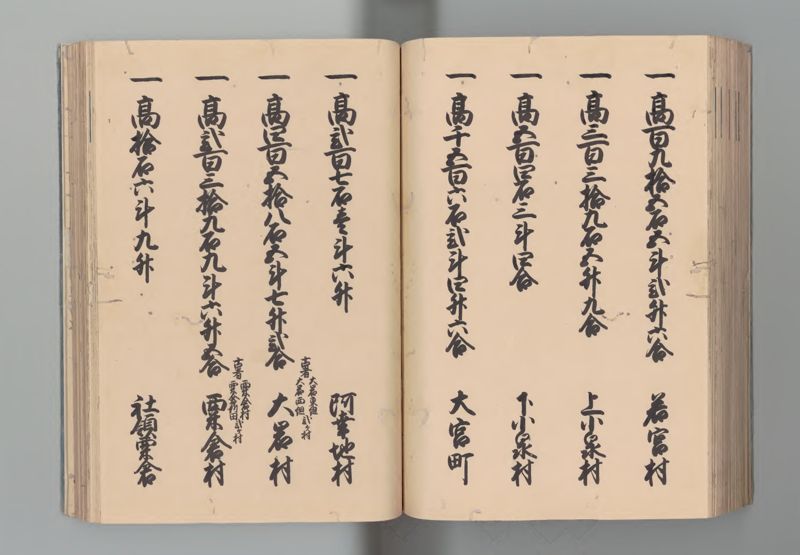 一高百九拾五石五斗弐升六合 若宮村
一高三百三拾九石五升九合 上小泉村
一高五百四石三斗四合 下小泉村
一高千五百六石弐斗四升六合 大宮町
一高弐百七石壱斗六升 阿幸地村
一高四百五拾八石五斗七升弐合 大岩村
古者 大岩東組 大岩西組 弐ヶ村
一高弐百三拾九石九斗六升五合 粟倉村
古者 粟倉村 粟倉新田 弐ヶ村
一高拾石六斗九升 社領粟倉